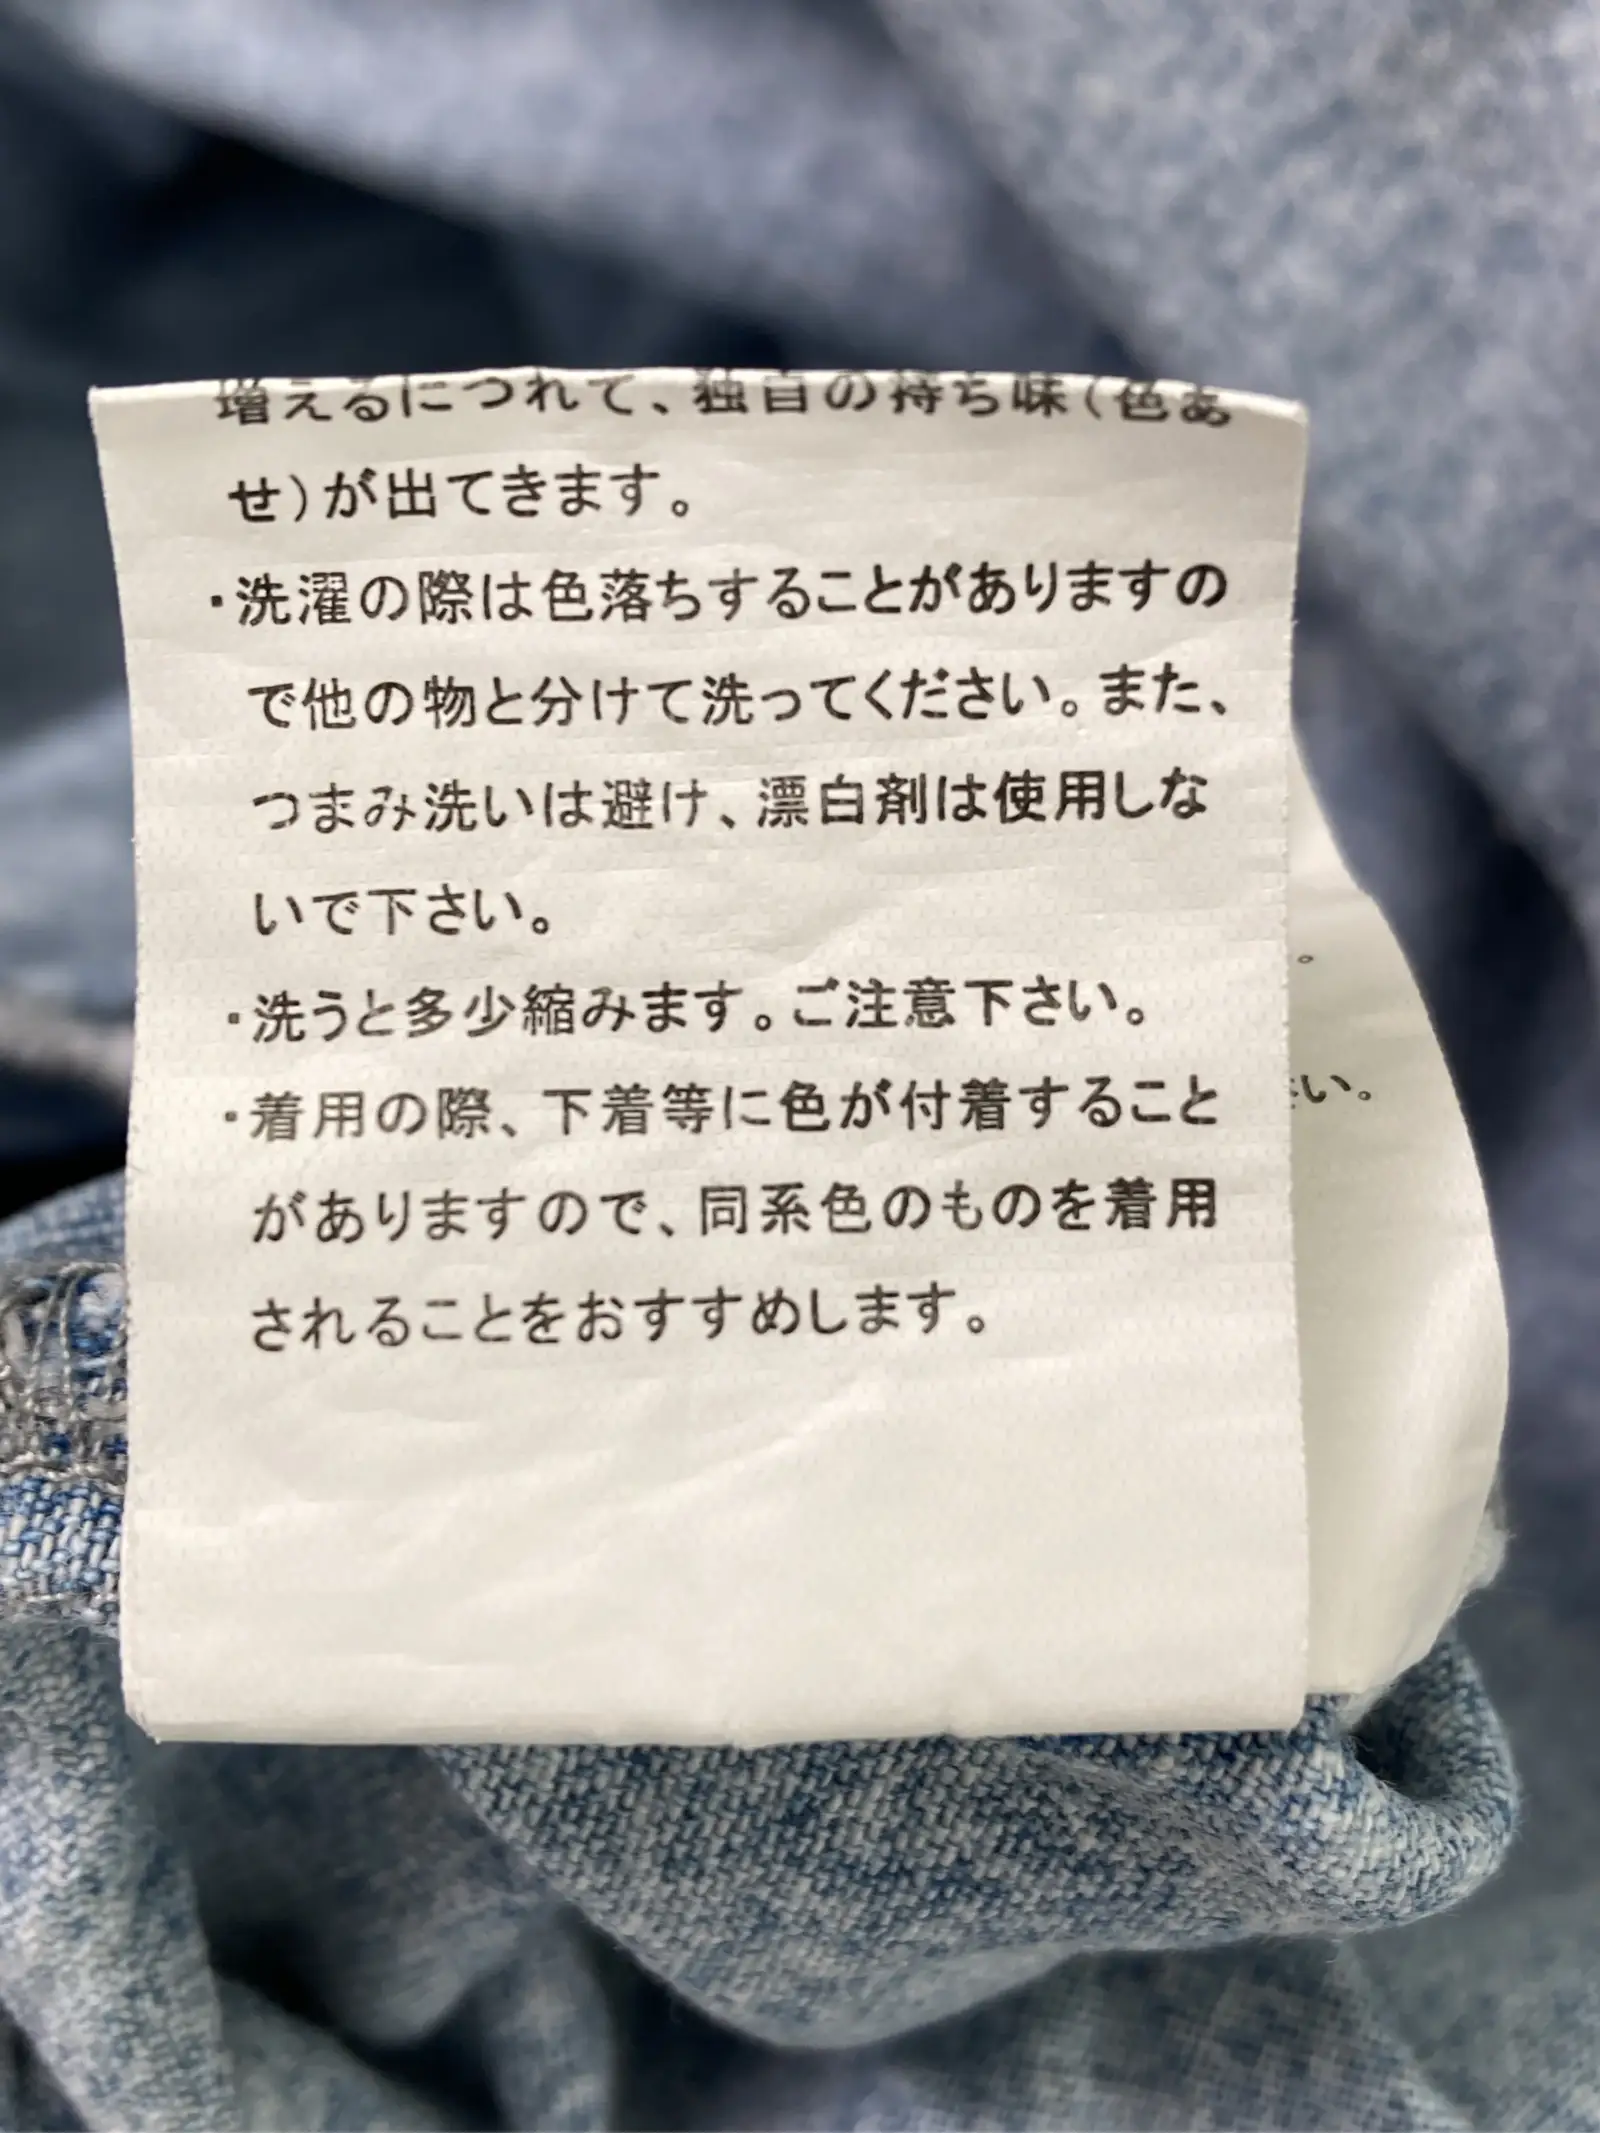 増えるにつれて、独自の持ち味(色あ
せ)が出てきます。
・洗濯の際は色落ちすることがありますの
で他の物と分けて洗ってください。また、
つまみ洗いは避け、漂白剤は使用しな
いで下さい。
・洗うと多少縮みます。ご注意下さい。
・着用の際、下着等に色が付着すること
がありますので、同系色のものを着用
されることをおすすめします。
。
い。